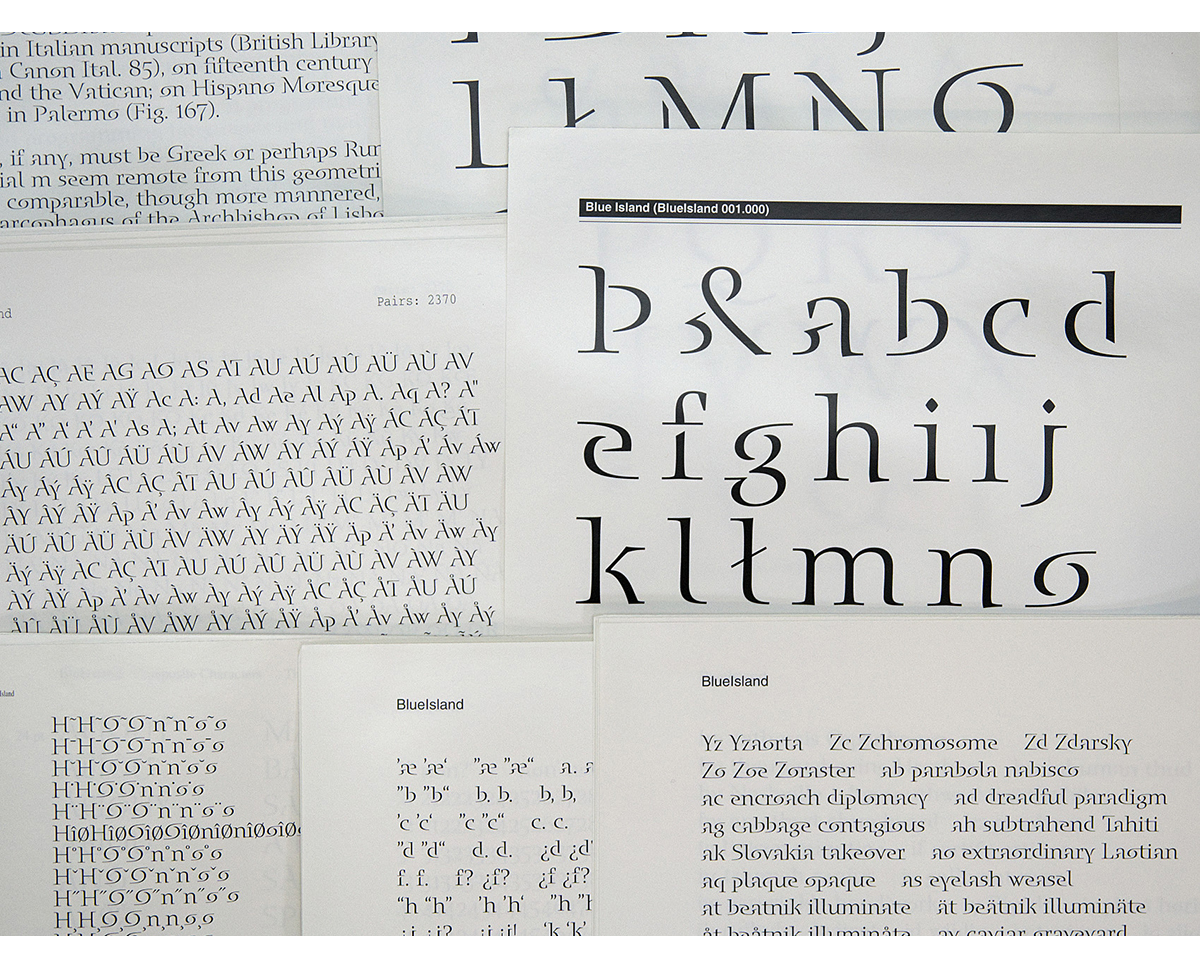 in Italian manuscripts (British Library
Canon Ital. 85), on fifteenth century
nd the Vatican; on Hispano Moresque
in Palermo (Fig. 167).
, if any, must be Greek or perhaps Run
ial m seem remote from this geometri
comparable, though more mannered,
arcophagus of the Archbishop of Lisbo
L Ł M N O
Blue Island (BlueIsland 001.000)
Þ & a b c d
e f g h i ı j
k l ł m n o
nd
Pairs: 2370
AC AÇ AE AG AO AS AT AU AÚ AÛ AÜ AÙ AV
AW AY AÝ AŸ Ac A: A, Ad Ae Al Ap A. Aq A? A"
A“ A” A‘ A’ A' As A; At Av Aw Ay Aý Aÿ ÁC ÁÇ ÁT
ÁU ÁÚ ÁÛ ÁÜ ÁÙ ÁV ÁW ÁY ÁÝ ÁŸ Áp Á’ Áv Áw
Áy Áý Áÿ ÂC ÂÇ ÂT ÂU ÂÚ ÂÛ ÂÜ ÂÙ ÂV ÂW
ÂY ÂÝ ÂŸ Âp Â’ Âv Âw Ây Âý Âÿ ÄC ÄÇ ÄT ÄU
ÄÚ ÄÛ ÄÜ ÄÙ ÄV ÄW ÄY ÄÝ ÄŸ Äp Ä’ Äv Äw Äy
Äý Äÿ ÀC ÀÇ ÀT ÀU ÀÚ ÀÛ ÀÜ ÀÙ ÀV ÀW ÀY
ÀÝ ÀŸ Àp À’ Àv Àw Ày Àý Àÿ ÅC ÅÇ ÅT ÅU ÅÚ
ÅÛ ÅÜ ÅÙ ÅV ÅW ÅY ÅÝ ÅŸ Åp Å’ Åv Åw Åy Åý
Island
H˜H˜O˜O˜n˜n˜o˜o
H¯H¯O¯O¯n¯n¯o¯o
H˘H˘O˘O˘n˘n˘o˘o
H˙H˙O˙O˙n˙n˙o˙o
H¨H¨O¨O¨n¨n¨o¨o
HîØHîØOîØOîØnîØnîØoîØo
H˚H˚O˚O˚n˚n˚o˚o
HˇHˇOˇOˇnˇnˇoˇo
H˝H˝O˝O˝n˝n˝o˝o
H¸H¸O¸O¸n¸n¸o¸o
BlueIsland
’æ ’æ‘ ”æ ”æ“ a. a
”b ”b“ b. b. b, b,
’c ’c‘ ”c ”c“ c. c.
”d ”d“ d. d. ¿d ¿d
f. f. f? ¿f? ¿f ¿f?
“h “h” ’h ’h‘ ”h ”h
¡j ¡j! ‘k ‘k’
BlueIsland
Yz Yzaorta Zc Zchromosome Zd Zdarsky
Zo Zoe Zoraster ab parabola nabisco
ac encroach diplomacy ad dreadful paradigm
ag cabbage contagious ah subtrahend Tahiti
ak Slovakia takeover ao extraordinary Laotian
aq plaque opaque as eyelash weasel
at beatnik illuminate ät beätnik illuminäte
åt beåtnik illuminåte av caviar graveyard